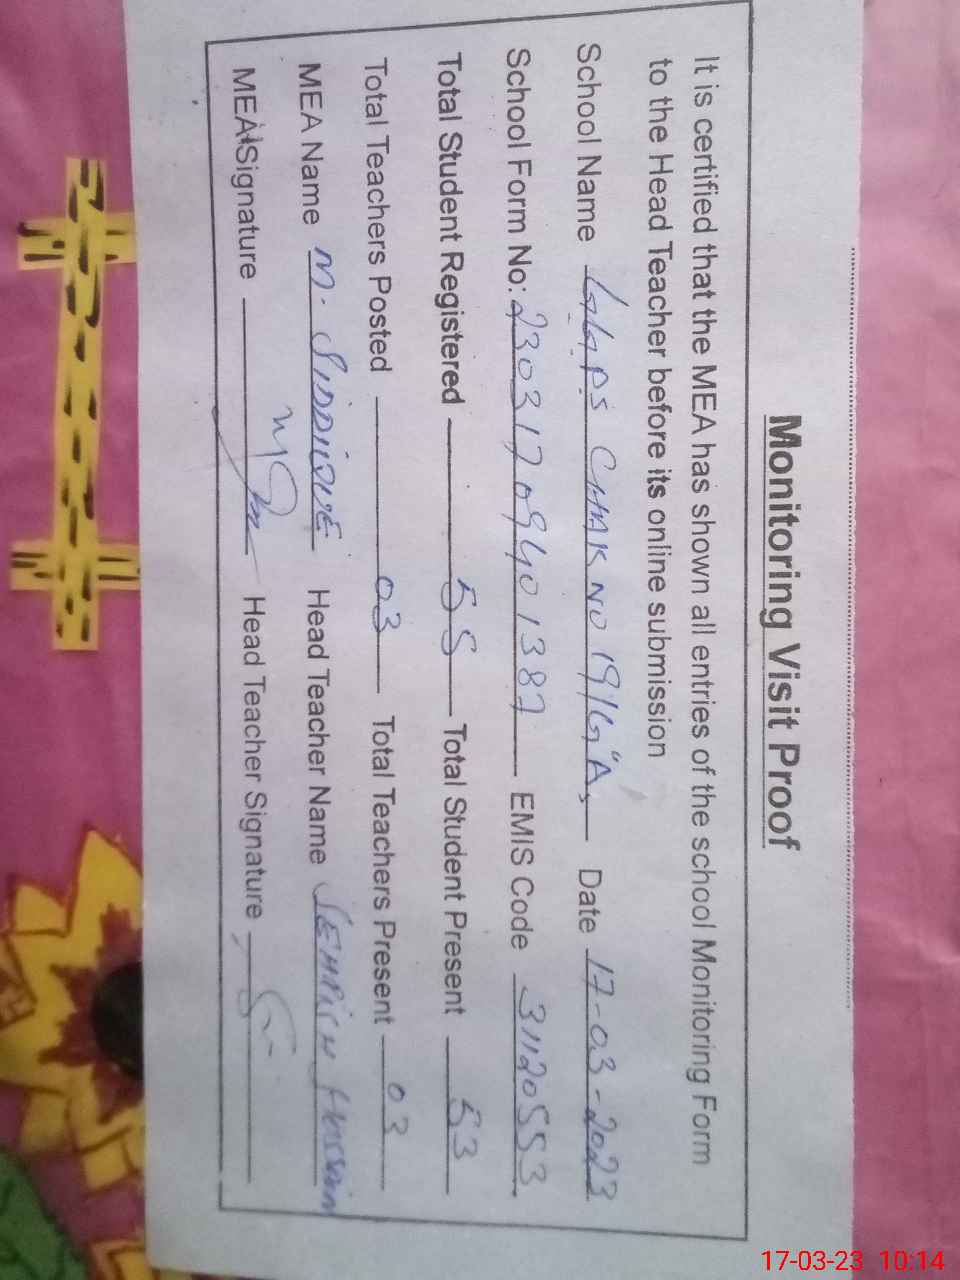 Monitoring Visit Proof
It is certified that the MEA has shown all entries of the school Monitoring Form
to the Head Teacher before its online submission
School Name GGPS CHAK NO 19/G "A" Date 17-03-2023
School Form No: 23031709401387 EMIS Code 31120553
Total Student Registered 55 Total Student Present 53
Total Teachers Posted 03 Total Teachers Present 03
MEA Name M. SIDDIQUE Head Teacher Name Hussain
MEA Signature Head Teacher Signature
17-03-23 10:14